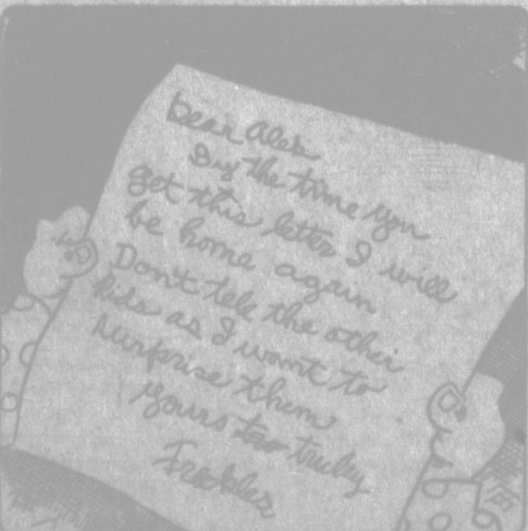 Dear Alek
By the time you
get this letter I will
be home again
Don't tell the other
kids as I want to
surprise them
Yours too truley
Freckles